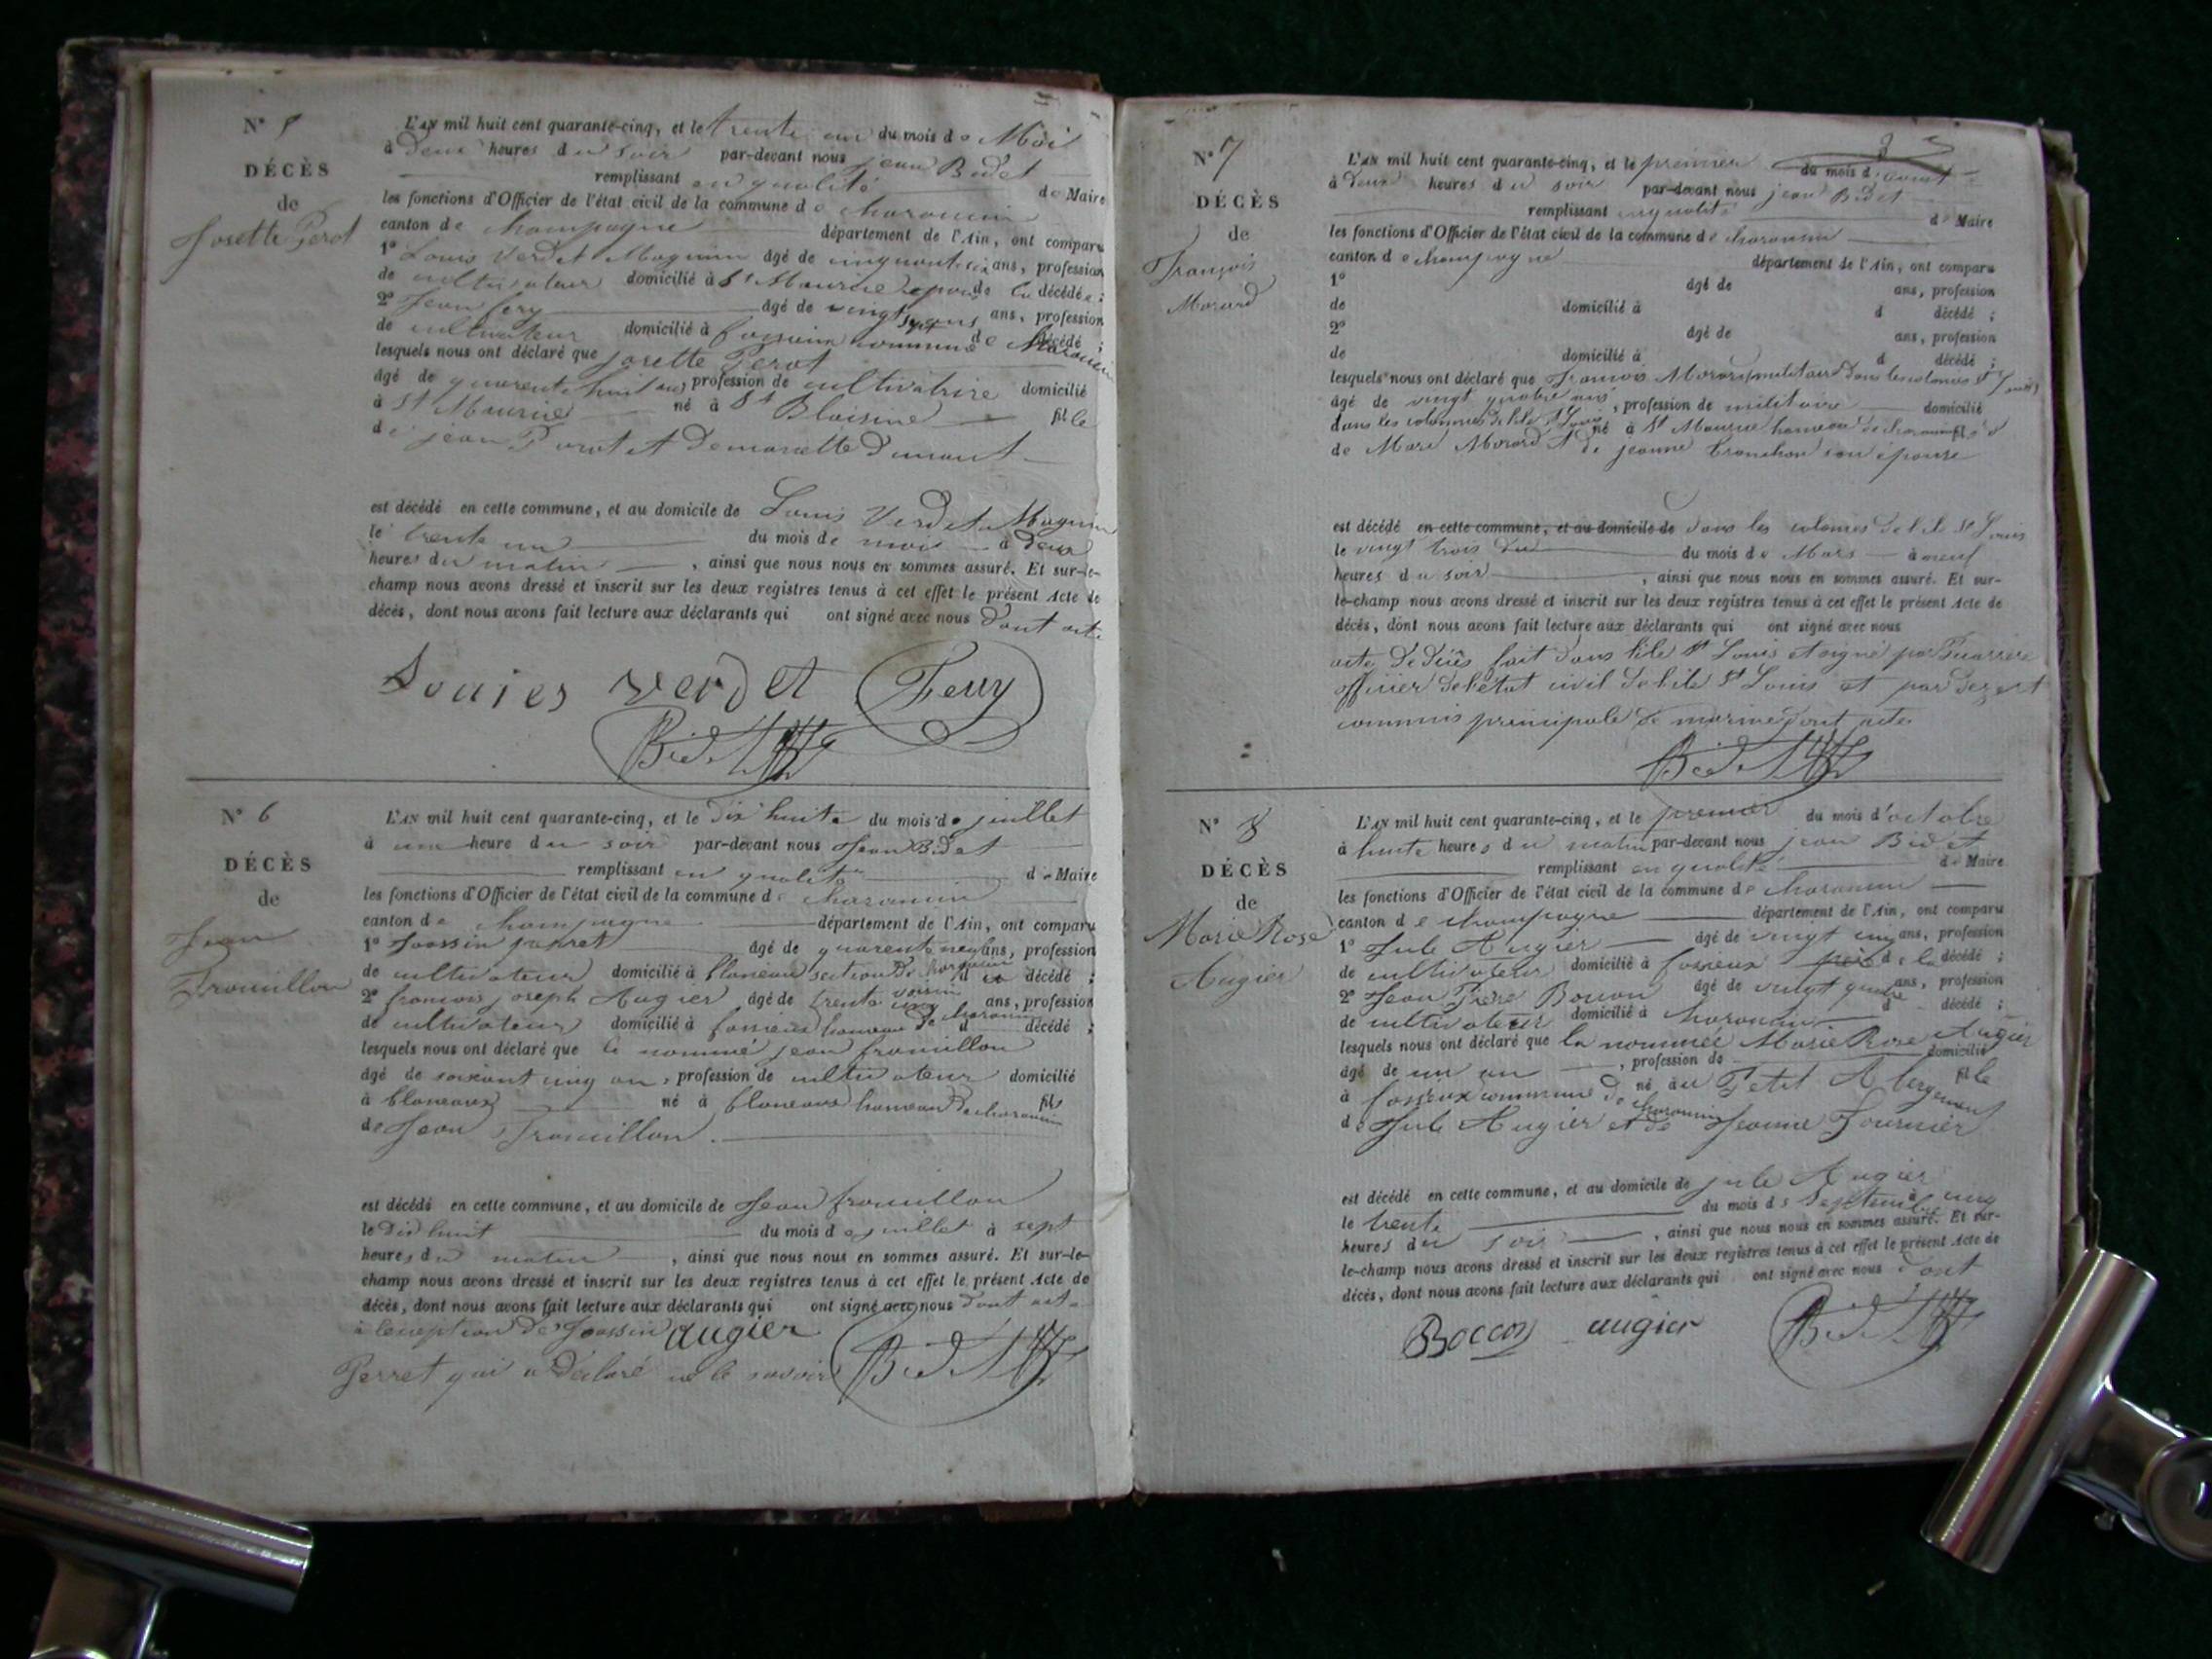 N° 5
DÉCÈS
de
Josette Perot
L'AN mil huit cent quarante-cinq, et le trente un du mois de Mai
à deux heures du soir par-devant nous jean Bidet
remplissant en qualité de Maire
les fonctions d'Officier de l'état civil de la commune de charancin
canton de champagne département de l'Ain, ont comparu
1° Louis Verdet Magnin âgé de cinquante six ans, profession
de cultivateur domicilié à St Maurice epoux de la décédée ;
2° Jean fery âgé de vingt sept ans ans, profession
de cultivateur domicilié à fossieux commune de charancin décédé ;
lesquels nous ont déclaré que josette Perot
âgé de quarente huit ans profession de cultivatrice domicilié
à St Maurice né à St Blaisine fille
de jean Perot et de mariette Dumont
est décédé en cette commune, et au domicile de Louis Verdet Magnin
le trente un du mois de mai à deux
heures du matin , ainsi que nous nous en sommes assuré. Et sur-le-
champ nous avons dressé et inscrit sur les deux registres tenus à cet effet le présent Acte de
décès, dont nous avons fait lecture aux déclarants qui ont signé avec nous dont acte
Louies verdet Fery
Bidet
N° 6
DÉCÈS
de
Jean
Trouillon
L'AN mil huit cent quarante-cinq, et le dix huite du mois de juillet
à une heure du soir par-devant nous Jean Bidet
remplissant en qualité de Maire
les fonctions d'Officier de l'état civil de la commune de charancin
canton de champagne département de l'Ain, ont comparu
1° Joossin perret âgé de quarente neuf ans, profession
de cultivateur domicilié à blaneau section de charancin décédé ;
2° francois joseph Augier voisin âgé de trente cinq ans, profession
de cultivateur domicilié à fossieux hameau de charancin d décédé ;
lesquels nous ont déclaré que le nommé jean frouillon
âgé de soixant cinq ans, profession de cultivateur domicilié
à blaneaux né à blaneaux hameau de charancin fils
de Jean Trouillon.
est décédé en cette commune, et au domicile de Jean frouillon
le dix huit du mois de juillet à sept
heures du matin , ainsi que nous nous en sommes assuré. Et sur-le-
champ nous avons dressé et inscrit sur les deux registres tenus à cet effet le présent Acte de
décès, dont nous avons fait lecture aux déclarants qui ont signé avec nous dont acte
a lexeption de Joossin augier
Perret qui a déclaré ne le savoir Bidet
N° 7
DÉCÈS
de
François
Morard
L'AN mil huit cent quarante-cinq, et le premier du mois d'aout
à deux heures du soir par-devant nous jean Bidet
remplissant en qualité de Maire
les fonctions d'Officier de l'état civil de la commune de charancin
canton de champagne département de l'Ain, ont comparu
1° âgé de ans, profession
de domicilié à d décédé ;
2° âgé de ans, profession
de domicilié à d décédé ;
lesquels nous ont déclaré que francois Morard militaire dans les colonies St Louis
âgé de vingt quatre ans , profession de militaire domicilié
dans les colonies de lile St Louis né à St Maurice hameau de charancin fils d
de Mari Morard et de jeanne tronchon son epouse
est décédé en cette commune, et au domicile de dans les colonies de lile St Louis
le vingt trois du du mois de Mars à neuf
heures du soir , ainsi que nous nous en sommes assuré. Et sur-
le-champ nous avons dressé et inscrit sur les deux registres tenus à cet effet le présent Acte de
décès, dont nous avons fait lecture aux déclarants qui ont signé avec nous
acte de décès fait dans lile St Louis et signé par
officier de létat civil de lile St Louis et par
commis principale de marine dont acte
Bidet
N° 8
DÉCÈS
de
Marie Rose
Augier
L'AN mil huit cent quarante-cinq, et le premier du mois d'octobre
à huite heures du matin par-devant nous jean Bidet
remplissant en qualité de Maire
les fonctions d'Officier de l'état civil de la commune de charancin
canton de champagne département de l'Ain, ont comparu
1° Jule Augier âgé de vingt cinq ans, profession
de cultivateur domicilié à fossieux pere de la décédé ;
2° Jean Piere Bocon âgé de vingt quatre ans, profession
de cultivateur domicilié à charancin d décédé ;
lesquels nous ont déclaré que la nommée Marie Rose Augier
âgé de un an , profession de domicilié
à fossieux commune de charancin né au Petit Abergement fille
de Jule Augier et de Jeanne Fournier
est décédé en cette commune, et au domicile de jule Augier
le trente du mois de septembre à cinq
heures du soir , ainsi que nous nous en sommes assuré. Et sur-
le-champ nous avons dressé et inscrit sur les deux registres tenus à cet effet le présent Acte de
décès, dont nous avons fait lecture aux déclarants qui ont signé avec nous dont
Bocon augier Bidet